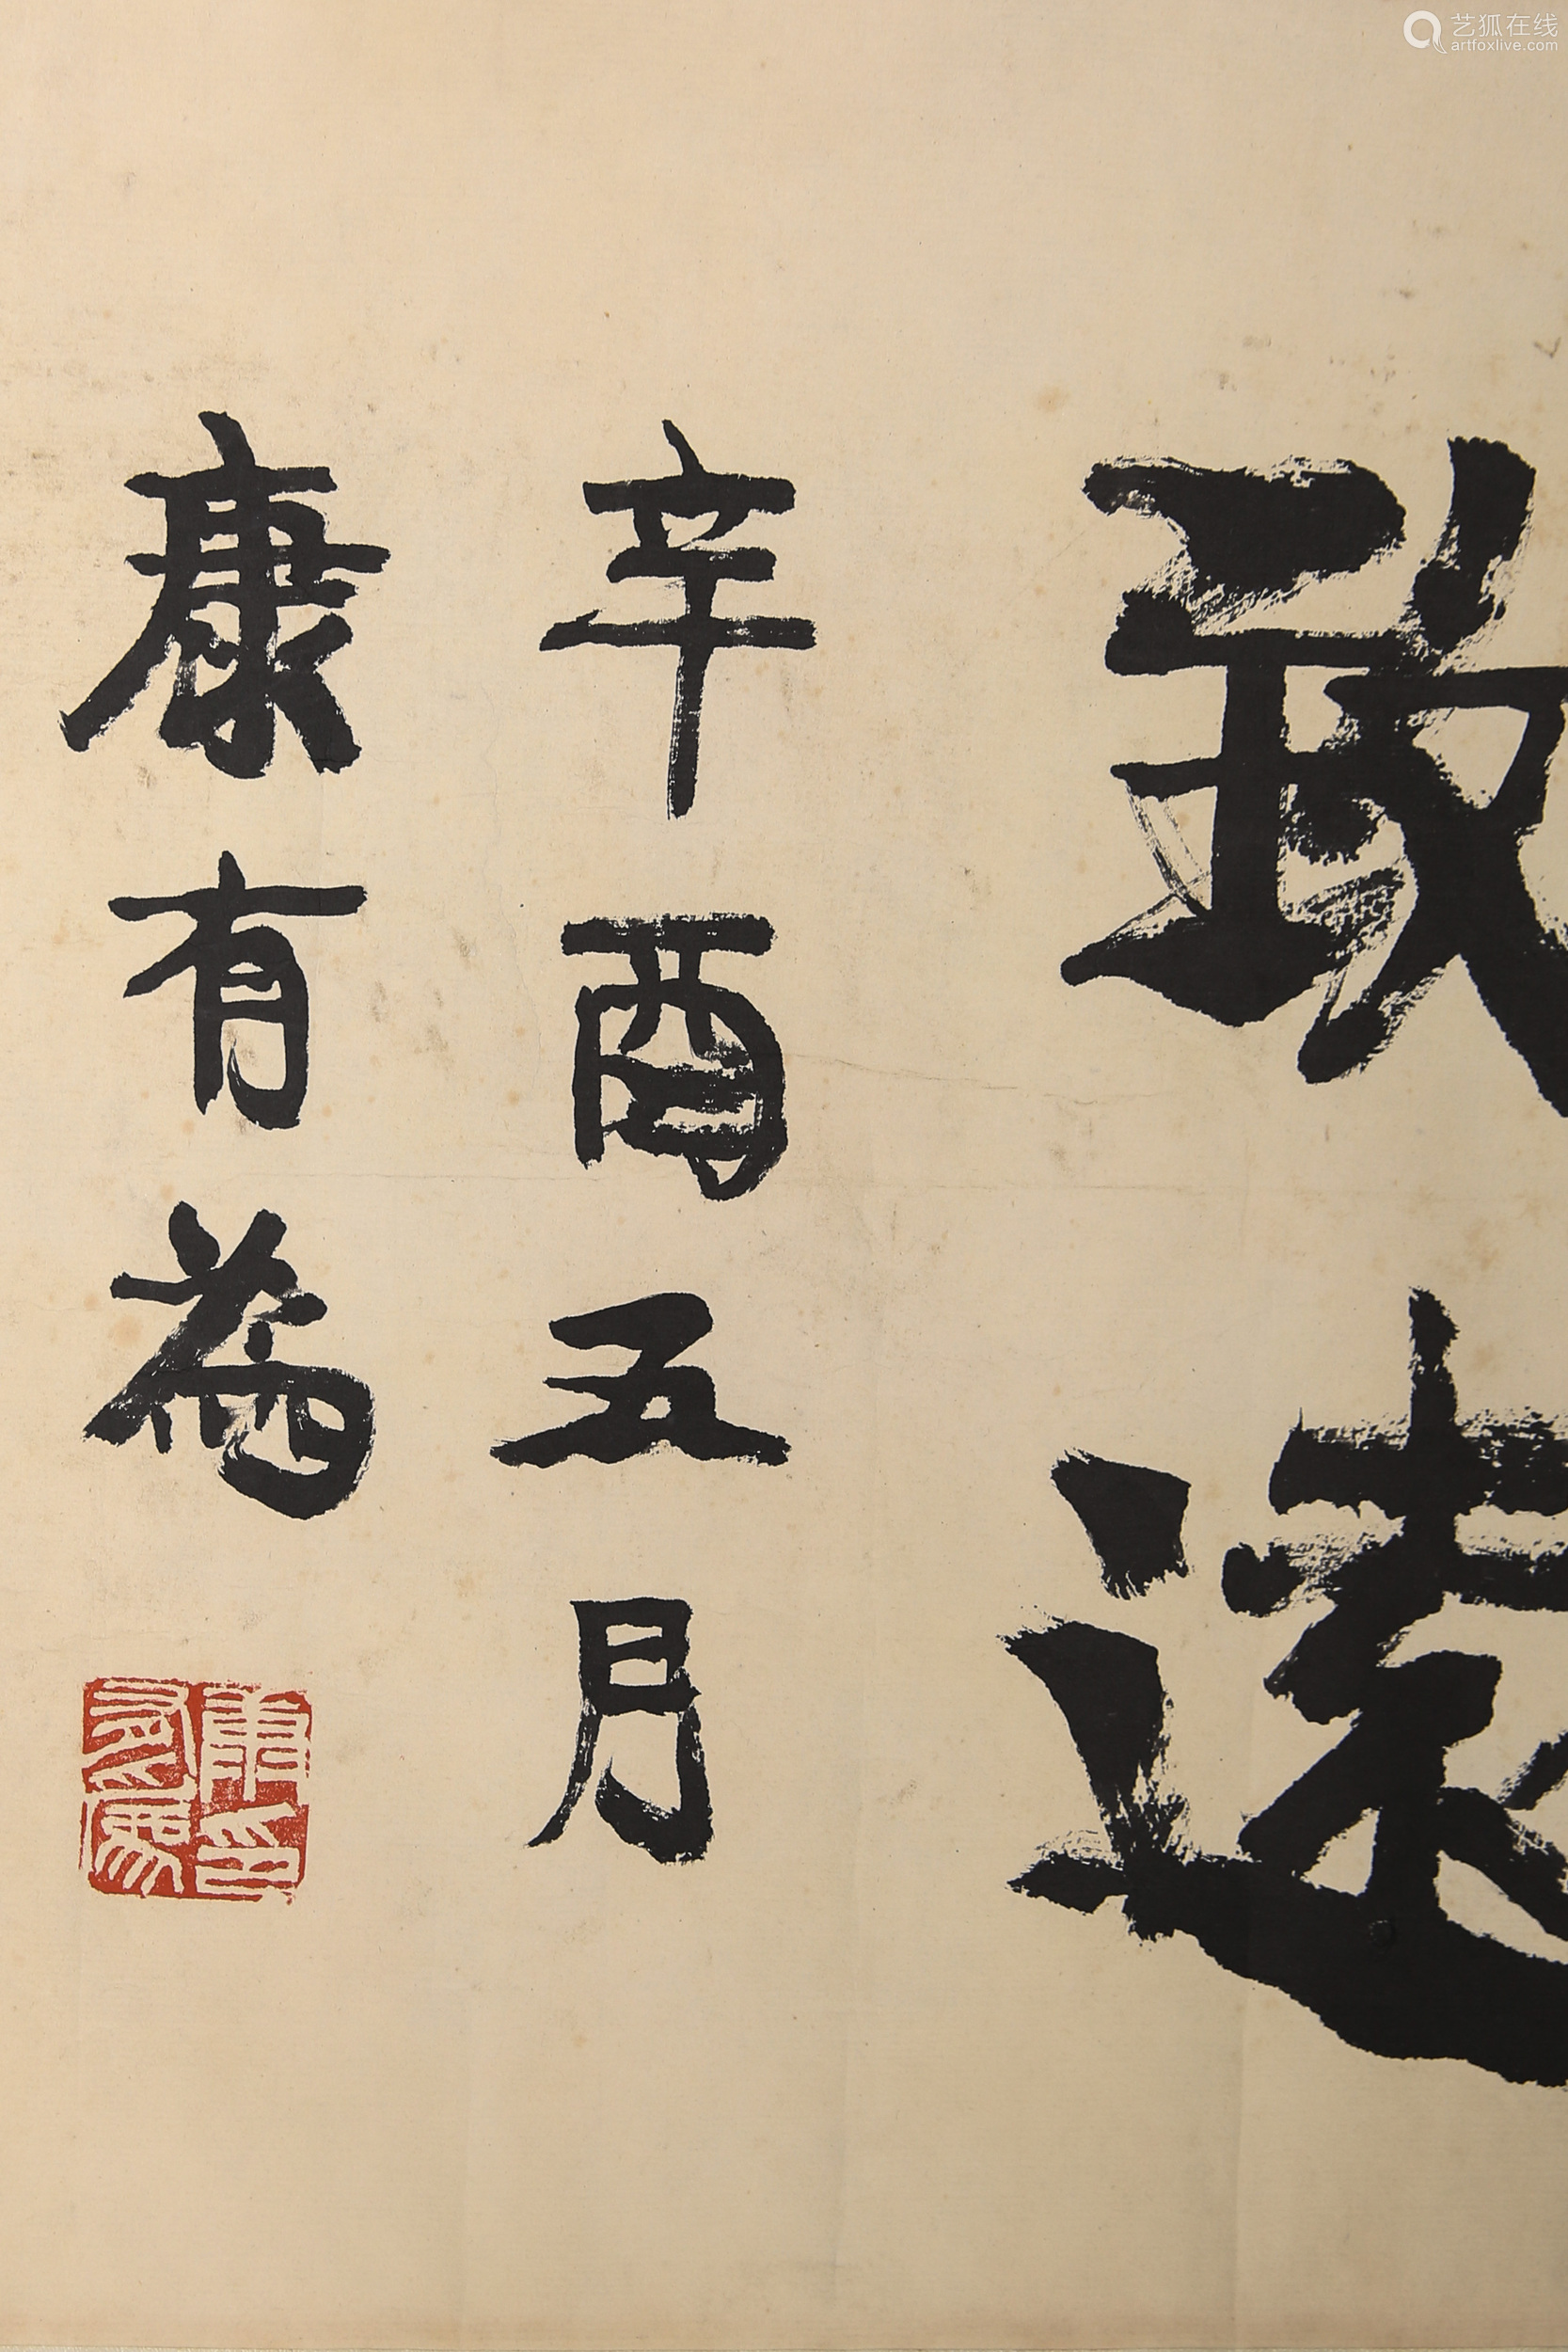 致遠
辛酉五月
康有為
康有為印
艺狐在线
artfoxlive.com